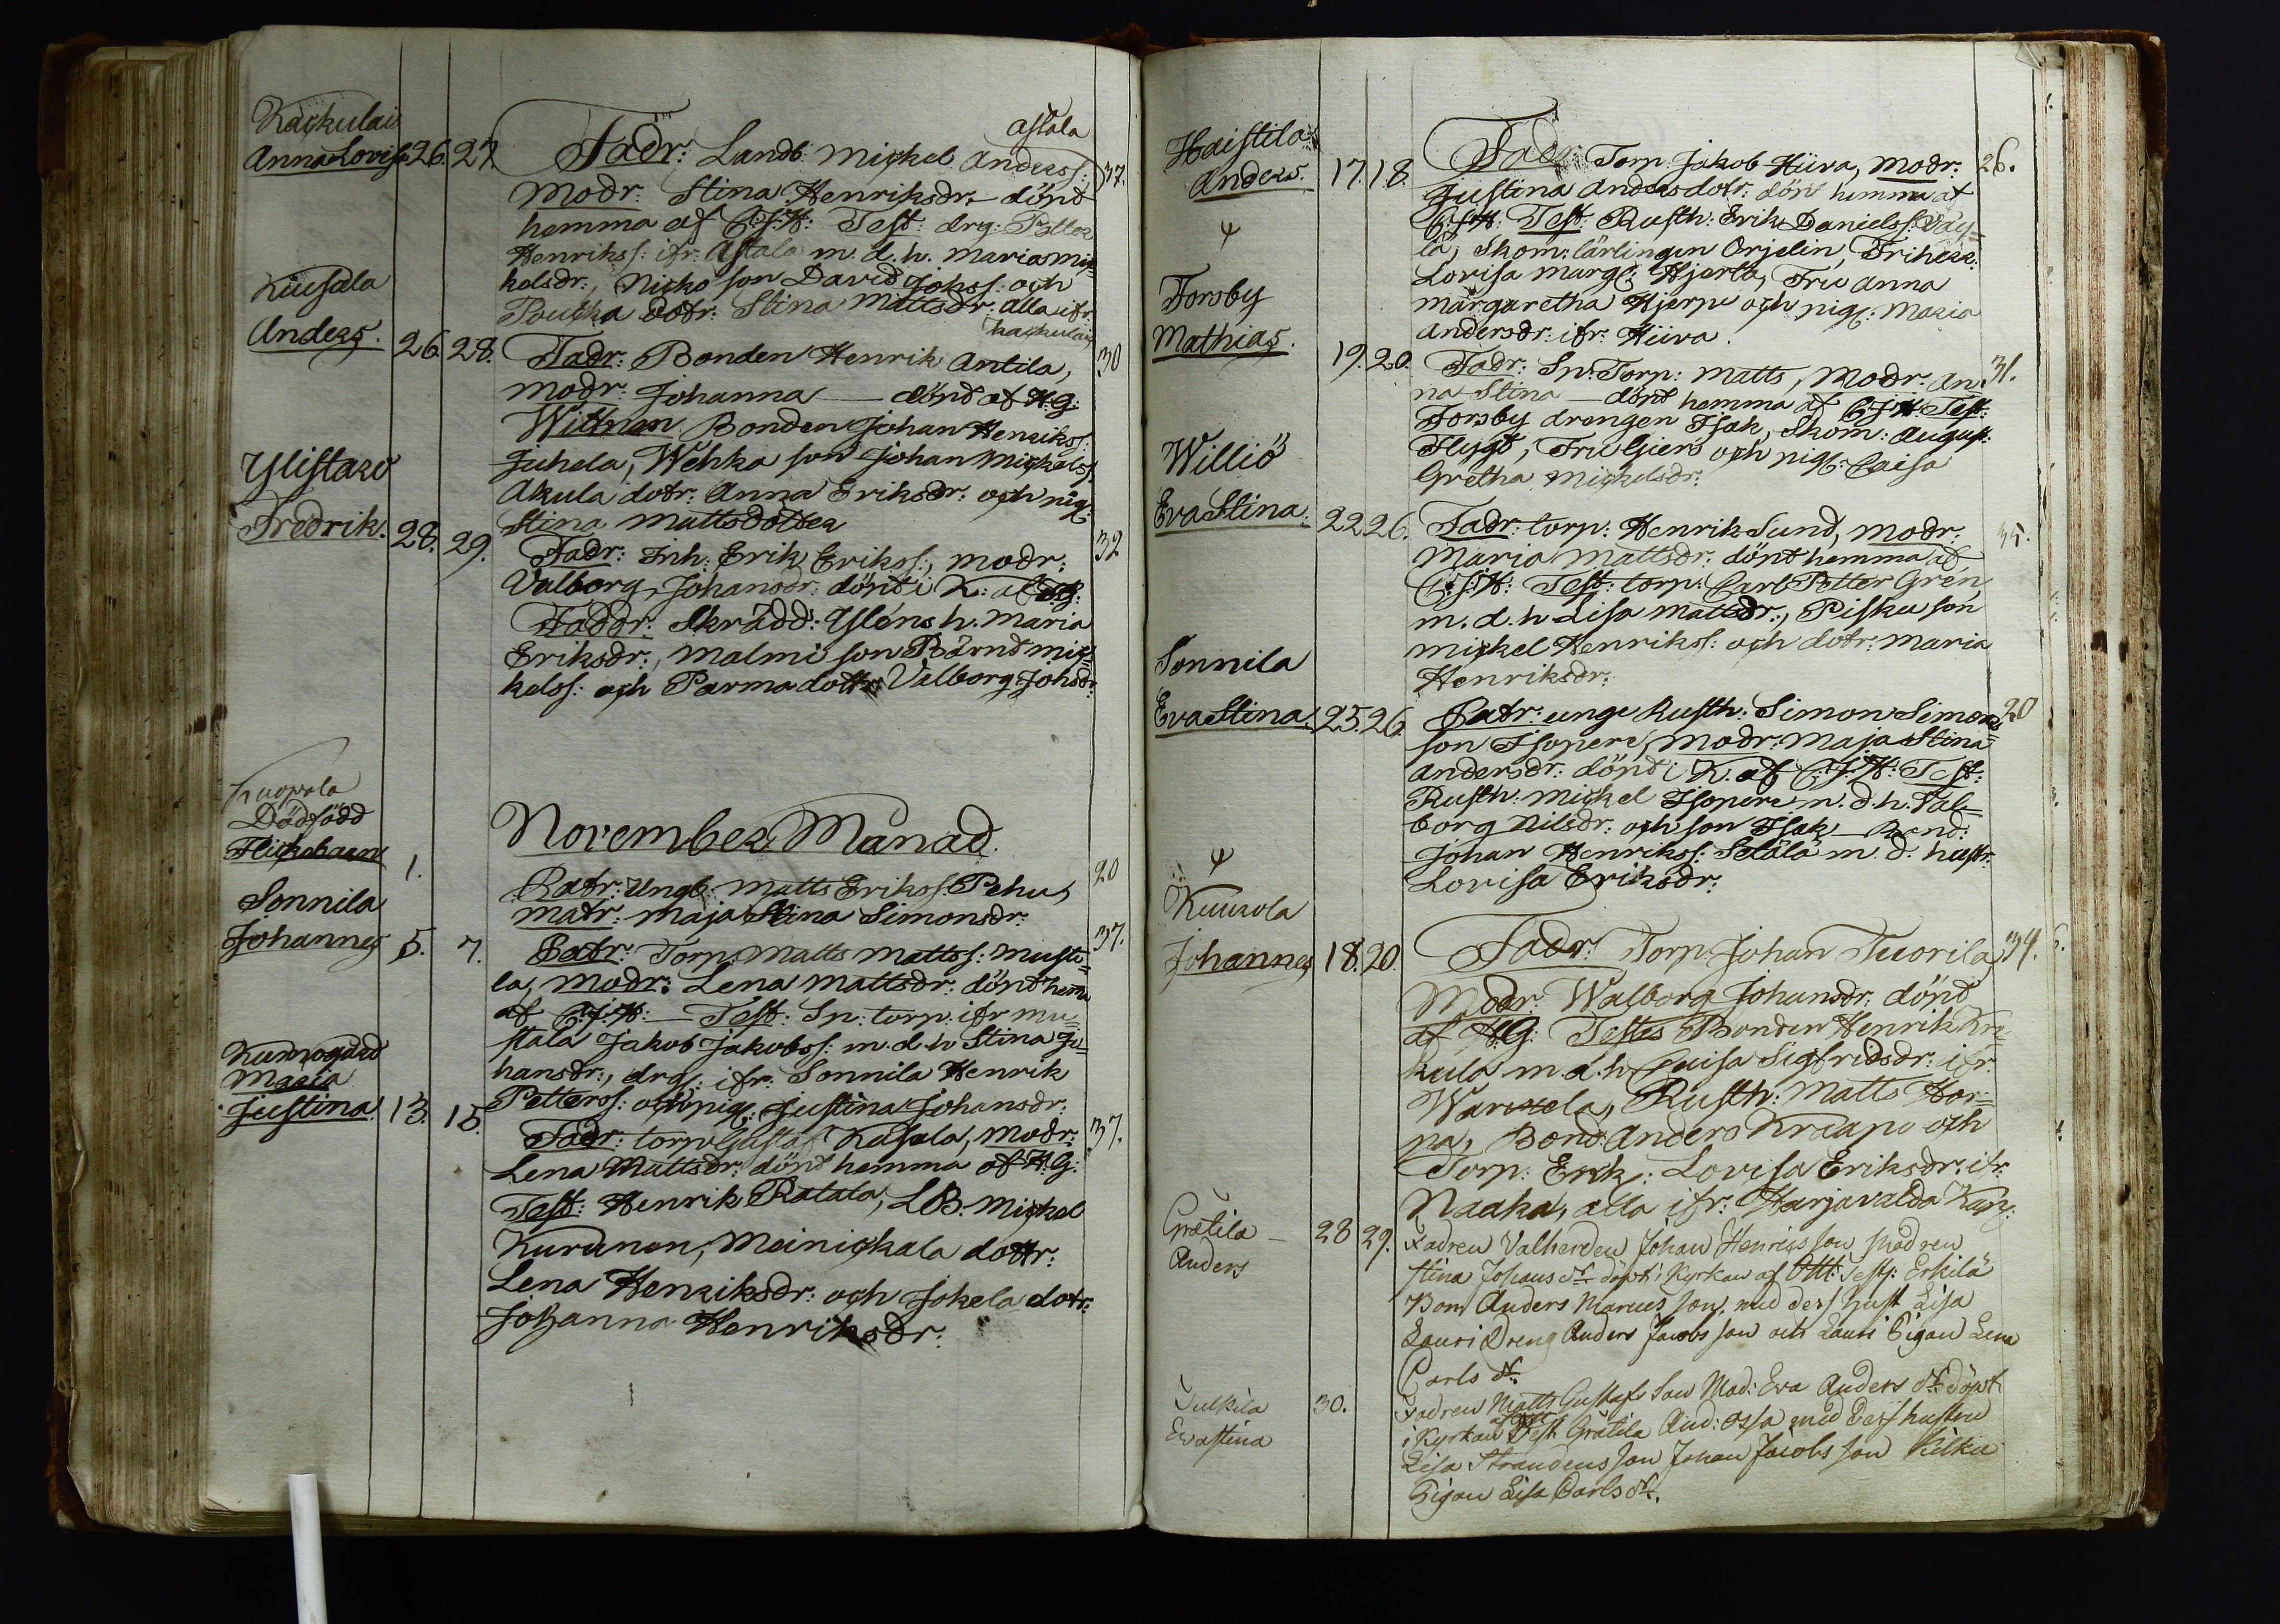 Kackulais
Anna Lovisa 26. 27.
Fadr: Landb: Michel Anderss: Astala 37.
Modr: Stina Henriksdr: dönd
hemma af C:J:H: Test: drg: Petter
Henrikss: ifr: Astala m. d. h. Maria Mic=
kelsdr:, Nicko son David Johss: och
Poucka dotr: Stina Mattsdr: alla ifr:
Kackulais
Kiusala
Anders. 26. 28.
Fadr: Bonden Henrik Antila, 30
Modr: Johanna — dönd af H:G:
Wittnen Bonden Johan Henrikss:
Juhela, Wehka son Johan Mickelss:
Akula dotr: Anna Eriksdr: och pig:
Stina Mattsdotter
Ylistaro
Fredrik. 28. 29.
Fadr: Inh: Erik Erikss:, Modr: 32
Valborg Johansdr: dönd i K: af HG:
Faddr: Skrädd: Yléns h. Maria
Eriksdr:, Malmi son Bärnd Mic=
kelss: och Parma dottr: Valborg Johsdr:
November Månad.
Kuopala
Dödfödd
Flickobarn 1.
Patr: Ungb: Matts Erikss: Pehu, 20
matr: Maja Stina Simonsdr:
Sonnila
Johannes 5. 7.
Patr: Torp: Matts Mattss: Musta= 37.
la, Modr: Lena Mattsdr: dönd hema
af C:J:H: — Test: Sp: torp: ifr Mu=
stala Jakob Jakobss: m. d. h Stina Jo=
hansdr:, drg: ifr: Sonnila Henrik
Petterss: och pig: Justina Johansdr:
Kumogård
Maria
Justina. 13. 15.
Fadr: torp: Gustaf Kusala, Modr: 37.
Lena Mattsdr: dönd hemma af H:G:
Test: Henrik Ratala, LB. Mickel
Kuronen, Meinickala dottr:
Lena Henriksdr: och Jokela dotr:
Johanna Henriksdr:
Haistila
Anders. 17. 18.
Fadr: Torp: Jakob Hiiva, Modr: 26.
Justina Andersdotr: dönt hemma af
C:J:H: Test: Rusth: Erik Danielss: Väy=
lä, Skom: lärlingen Orjelin, Friherr:
Lovisa Marg: Hjerta, Fru Anna
Margaretha Hjerpe och pig: Maria
Andersdr: ifr: Hiiva.
Torsby
Mathias. 19. 20.
Fadr: Sp: Torp: Matts, Modr: An= 31.
na Stina — dönt hemma af C:J:H: Test:
Torsby drengen Isak, Skom: August:
Flygt, Fru Giers och pig: Caisa
Gretha Mickelsdr:
Williö
Eva Stina. 22. 26.
Fadr: torp: Henrik Sund, Modr: 35.
Maria Mattsdr: dönt hemma af
C:J:H: Test: torp: Carl Petter Grén,
m. d. h Lisa Mattsdr:, Pisku son
Mickel Henrikss: och dotr: Maria
Henriksdr:
Sonnila
Eva Stina. 25. 26.
Patr: unge Rusth: Simon Simons= 20
son Isopere, Modr: Maja Stina
Andersdr: dönd i K. af C:J:H: Test:
Rusth: Mickel Isopere m. d. h. Val=
borg Nilsdr: och son Isak — Bond:
Johan Henrikss: Sälälä m. d. hustr.
Lovisa Eriksdr:
Kuurola
Johannes 18. 20.
Fadr: Torp: Johan Tuorila, 34.
Modr: Walborg Johansdr: dönd
af H:G: Testes Bonden Henrik Kra=
kula m. d. h Caisa Sigfridsdr: ifr:
Warxela, Rusth: Matts Hor=
pa, Bond: Anders Kraapo och
Torp: Erik: Lovisa Eriksdr: ifr:
Naaka, alla ifr: Harjavalda Kap:
Grätila
Anders — 28 29.
Fadren Valherden Johan Henrics son Modren
Stina Johans dr döpt i Kyrkan af Test: Erkilä
Bom Anders Marcus son, med dess Hust Lisa
Lauri Dreng Anders Jacobs son och Lauri Pigan Lena
Carls dr.
Sulkila
Evastina 30.
Fadren Matts Gustafs Son Mod: Eva Anders dr döpt
i Kyrkan Test Grätila And: Ossa med Dess hustru
Lisa Strandens son Johan Jacobs son Kilku
Pigan Lisa Carls dr.